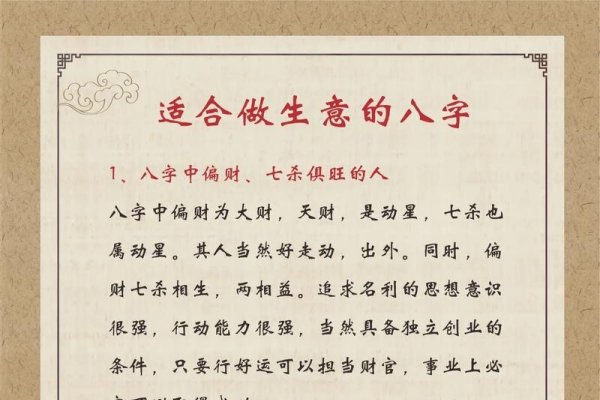 适合做生意的八字
1、八字中偏财、七杀俱旺的人
八字中偏财为大财，天财，是动星，七杀也
属动星。其人当然好走动，出外。同时，偏
财七杀相生，两相益。追求名利的思想意识
很强，行动能力很强，当然具备独立创业的
条件，只要行好运可以担当财官，事业上必